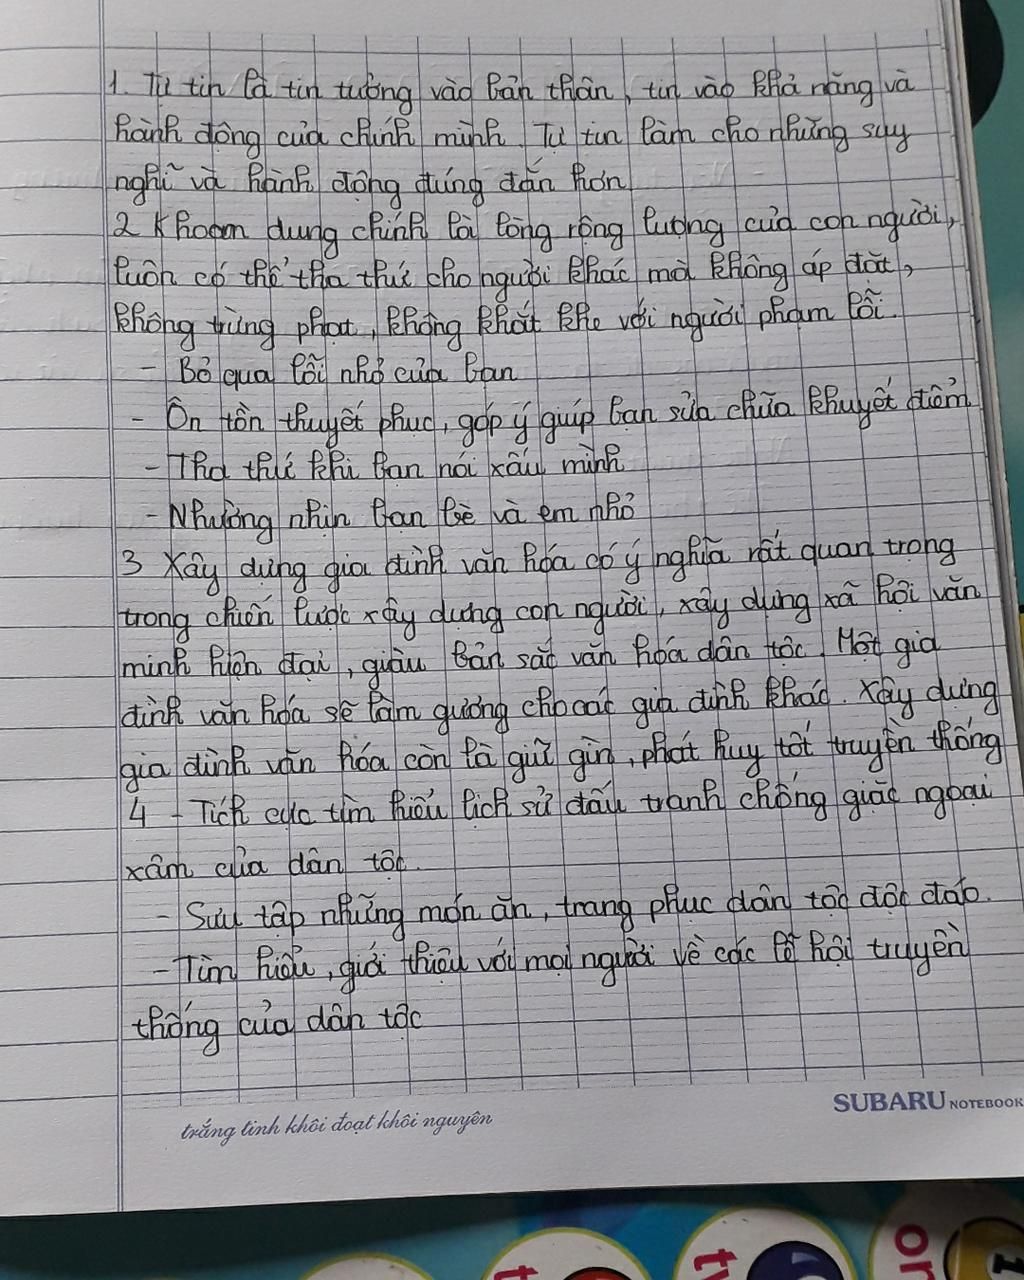 1. Tự tin là tin tưởng vào bản thân, tin vào khả năng và
hành động của chính mình. Tự tin làm cho những suy
nghĩ và hành động đúng đắn hơn
2 Khoan dung chính là lòng rộng lượng của con người,
luôn có thể tha thứ cho người khác mà không áp đặt,
không trừng phạt, không khắt khe với người phạm lỗi.
- Bỏ qua lỗi nhỏ của bạn
- Ôn tồn thuyết phục, góp ý giúp bạn sửa chữa khuyết điểm
- Tha thứ khi bạn nói xấu mình
- Nhường nhịn bạn bè và em nhỏ
3 Xây dựng gia đình văn hóa có ý nghĩa rất quan trọng
trong chiến lược xây dựng con người, xây dựng xã hội văn
minh hiện đại, giàu bản sắc văn hóa dân tộc. Một gia
đình văn hóa sẽ làm gương cho các gia đình khác. Xây dựng
gia đình văn hóa còn là giữ gìn, phát huy tốt truyền thống
4 - Tích cực tìm hiểu lịch sử đấu tranh chống giặc ngoại
xâm của dân tộc.
- Sưu tập những món ăn, trang phục dân tộc độc đáo.
- Tìm hiểu, giới thiệu với mọi người về các lễ hội truyền
thống của dân tộc
SUBARU NOTEBOOK
trắng tinh khôi đoạt khôi nguyên
or